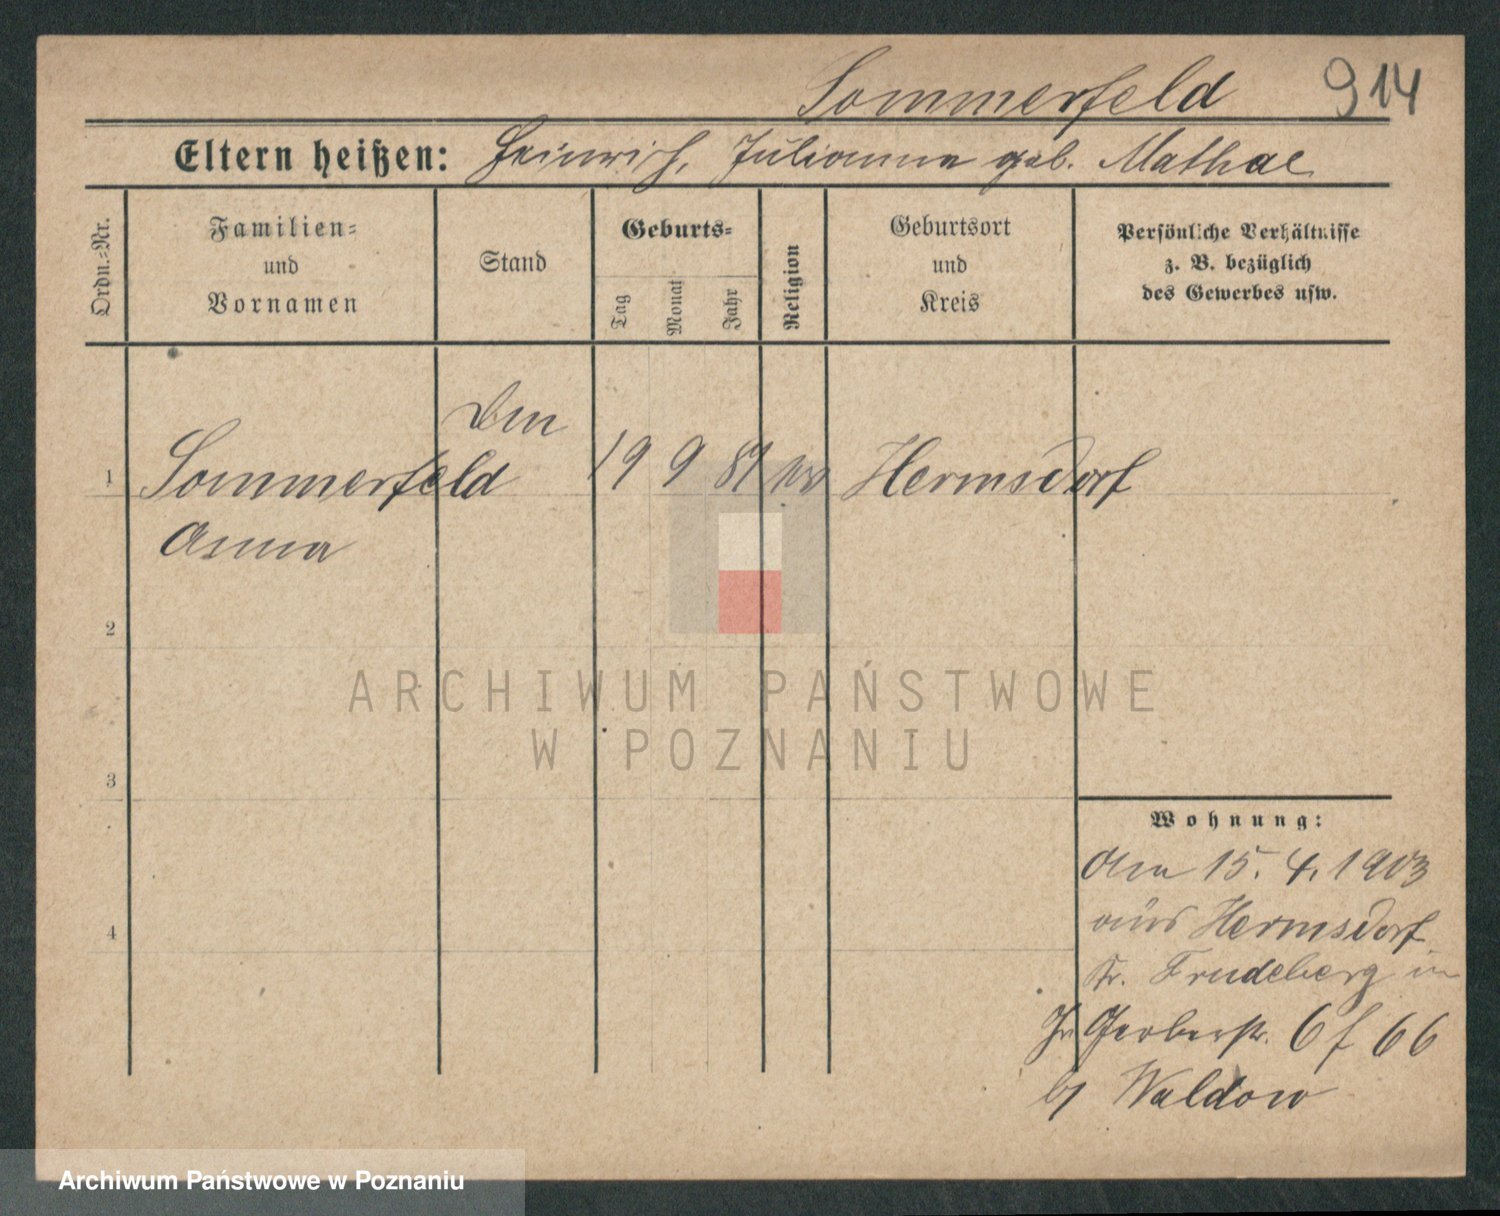 Sommerfeld 914
Eltern heißen: Heinrich, Julianna geb. Mathae
Ordn.=Nr.
Familien=
und
Vornamen
Stand
Geburts=
Tag
Monat
Jahr
Religion
Geburtsort
und
Kreis
Persönliche Verhältnisse
z. B. bezüglich
des Gewerbes usw.
1 Sommerfeld 19 9 89 Hermsdorf
Anna
2
3
4
Wohnung:
Am 15. 4. 1903
aus Hermsdorf
Kr. Frudeberg in
Gerberstr. 6 f 66
by Waldow
ARCHIWUM PAŃSTWOWE
W POZNANIU
Archiwum Państwowe w Poznaniu